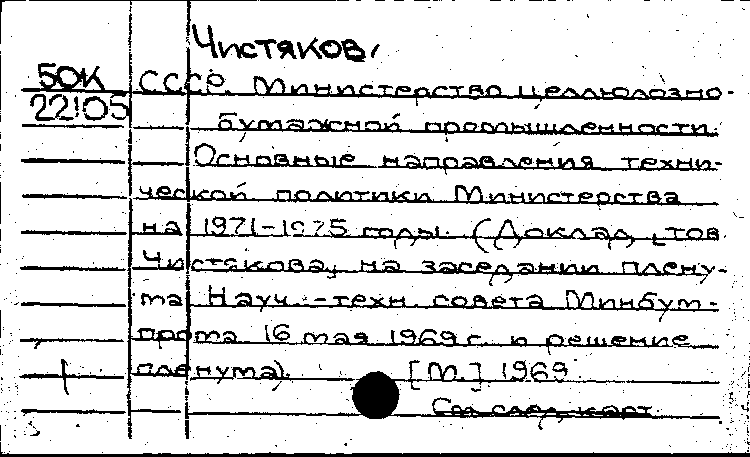 Чистяков,
50К СССР. Министерство целлюлозно-
22105 бумажной промышленности.
Основные направления техни-
ческой политики Министерства
на 1971-1975 годы. (Доклад тов.
Чистякова, на заседании плену-
ма Науч.-техн. совета Минбум-
прома 16 мая 1969 г. и решение
пленума). [М.] 1969
См. след. карт.